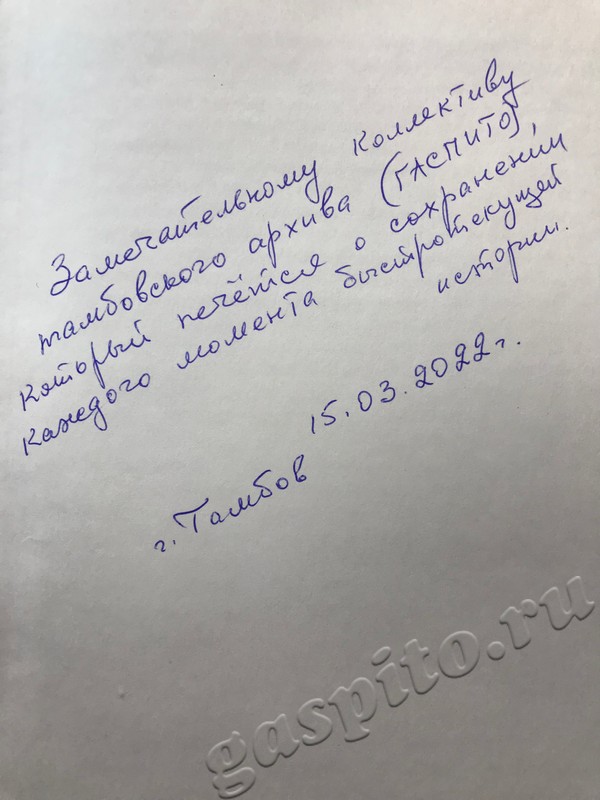 Замечательному коллективу
тамбовского архива (ГАСПИТО),
который печётся о сохранении
каждого момента быстротекущей
истории.
15.03.2022 г.
г. Тамбов
gaspito.ru